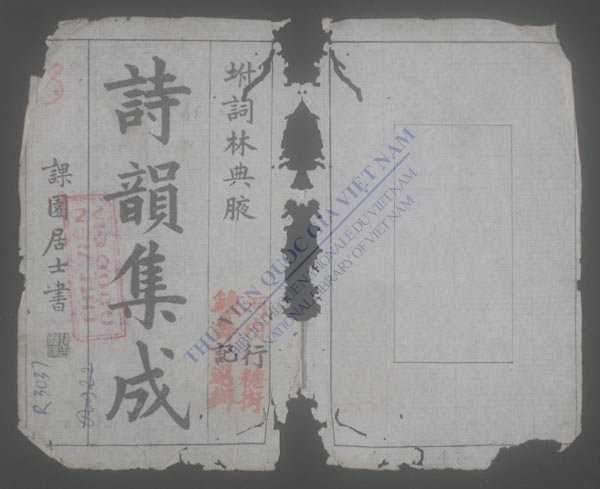 坿詞林典腋
詩韻集成
課園居士書
行
記
糖街
R 3037
3
THƯ VIỆN QUỐC GIA VIỆT NAM
BIBLIOTHEQUE NATIONALE DU VIETNAM
NATIONAL LIBRARY OF VIETNAM